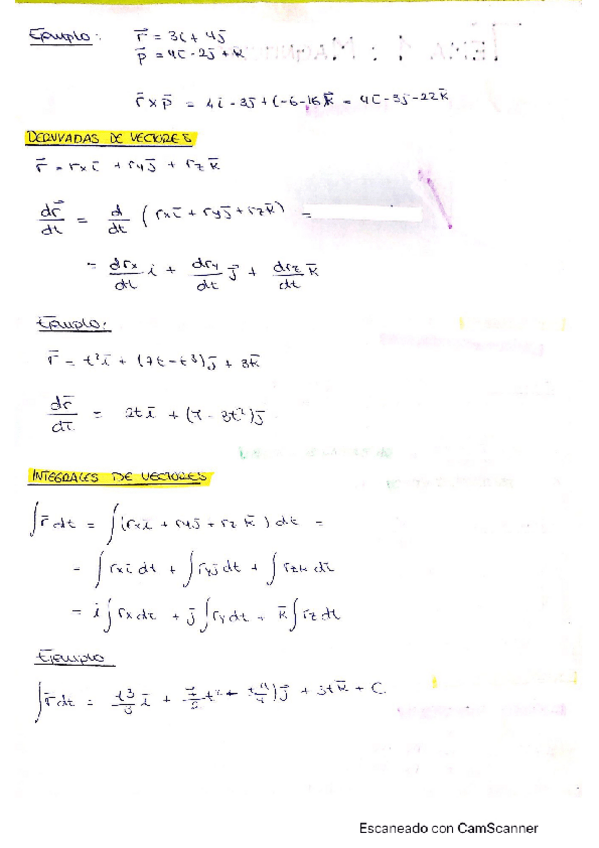 Ejemplo: r⃗ = 3i + 4j
p⃗ = 4i - 2j + k
r⃗ x p⃗ = 4i - 3j + (-6-16)k̄ = 4i - 3j - 22k̄
DERIVADAS DE VECTORES
r⃗ = rx ī + ry j̄ + rz k̄
dr⃗/dt = d/dt (rx ī + ry j̄ + rz k̄) =
= drx/dt i + dry/dt j̄ + drz/dt k̄
Ejemplo:
r̄ = t² ī + (7t - t³) j̄ + 3k̄
dr̄/dt = 2t ī + (7 - 3t²) j̄
INTEGRALES DE VECTORES
∫ r̄ dt = ∫ (rx ī + ry j̄ + rz k̄) dt =
= ∫ rx ī dt + ∫ ry j̄ dt + ∫ rz k dt
= i ∫ rx dt + j̄ ∫ ry dt + k̄ ∫ rz dt
Ejemplo
∫ r̄ dt = t³/3 ī + 7/2 t² - t⁴/4) j̄ + 3t k̄ + C.
Escaneado con CamScanner